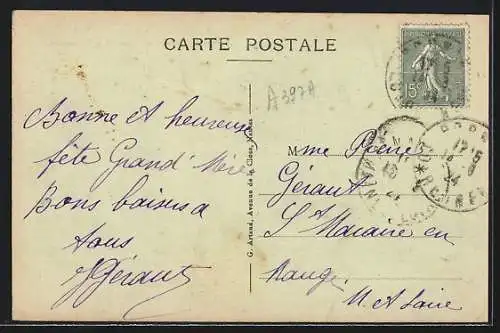 CARTE POSTALE
15c
A 397A
Bonne et heureuse
fête Grand' Mère
Bons baisers a
tous
Géraut
G. Artaud, Avenue de la Close, Nantes
Mme
Géraut
St Macaire en
Mauges
M et Loire